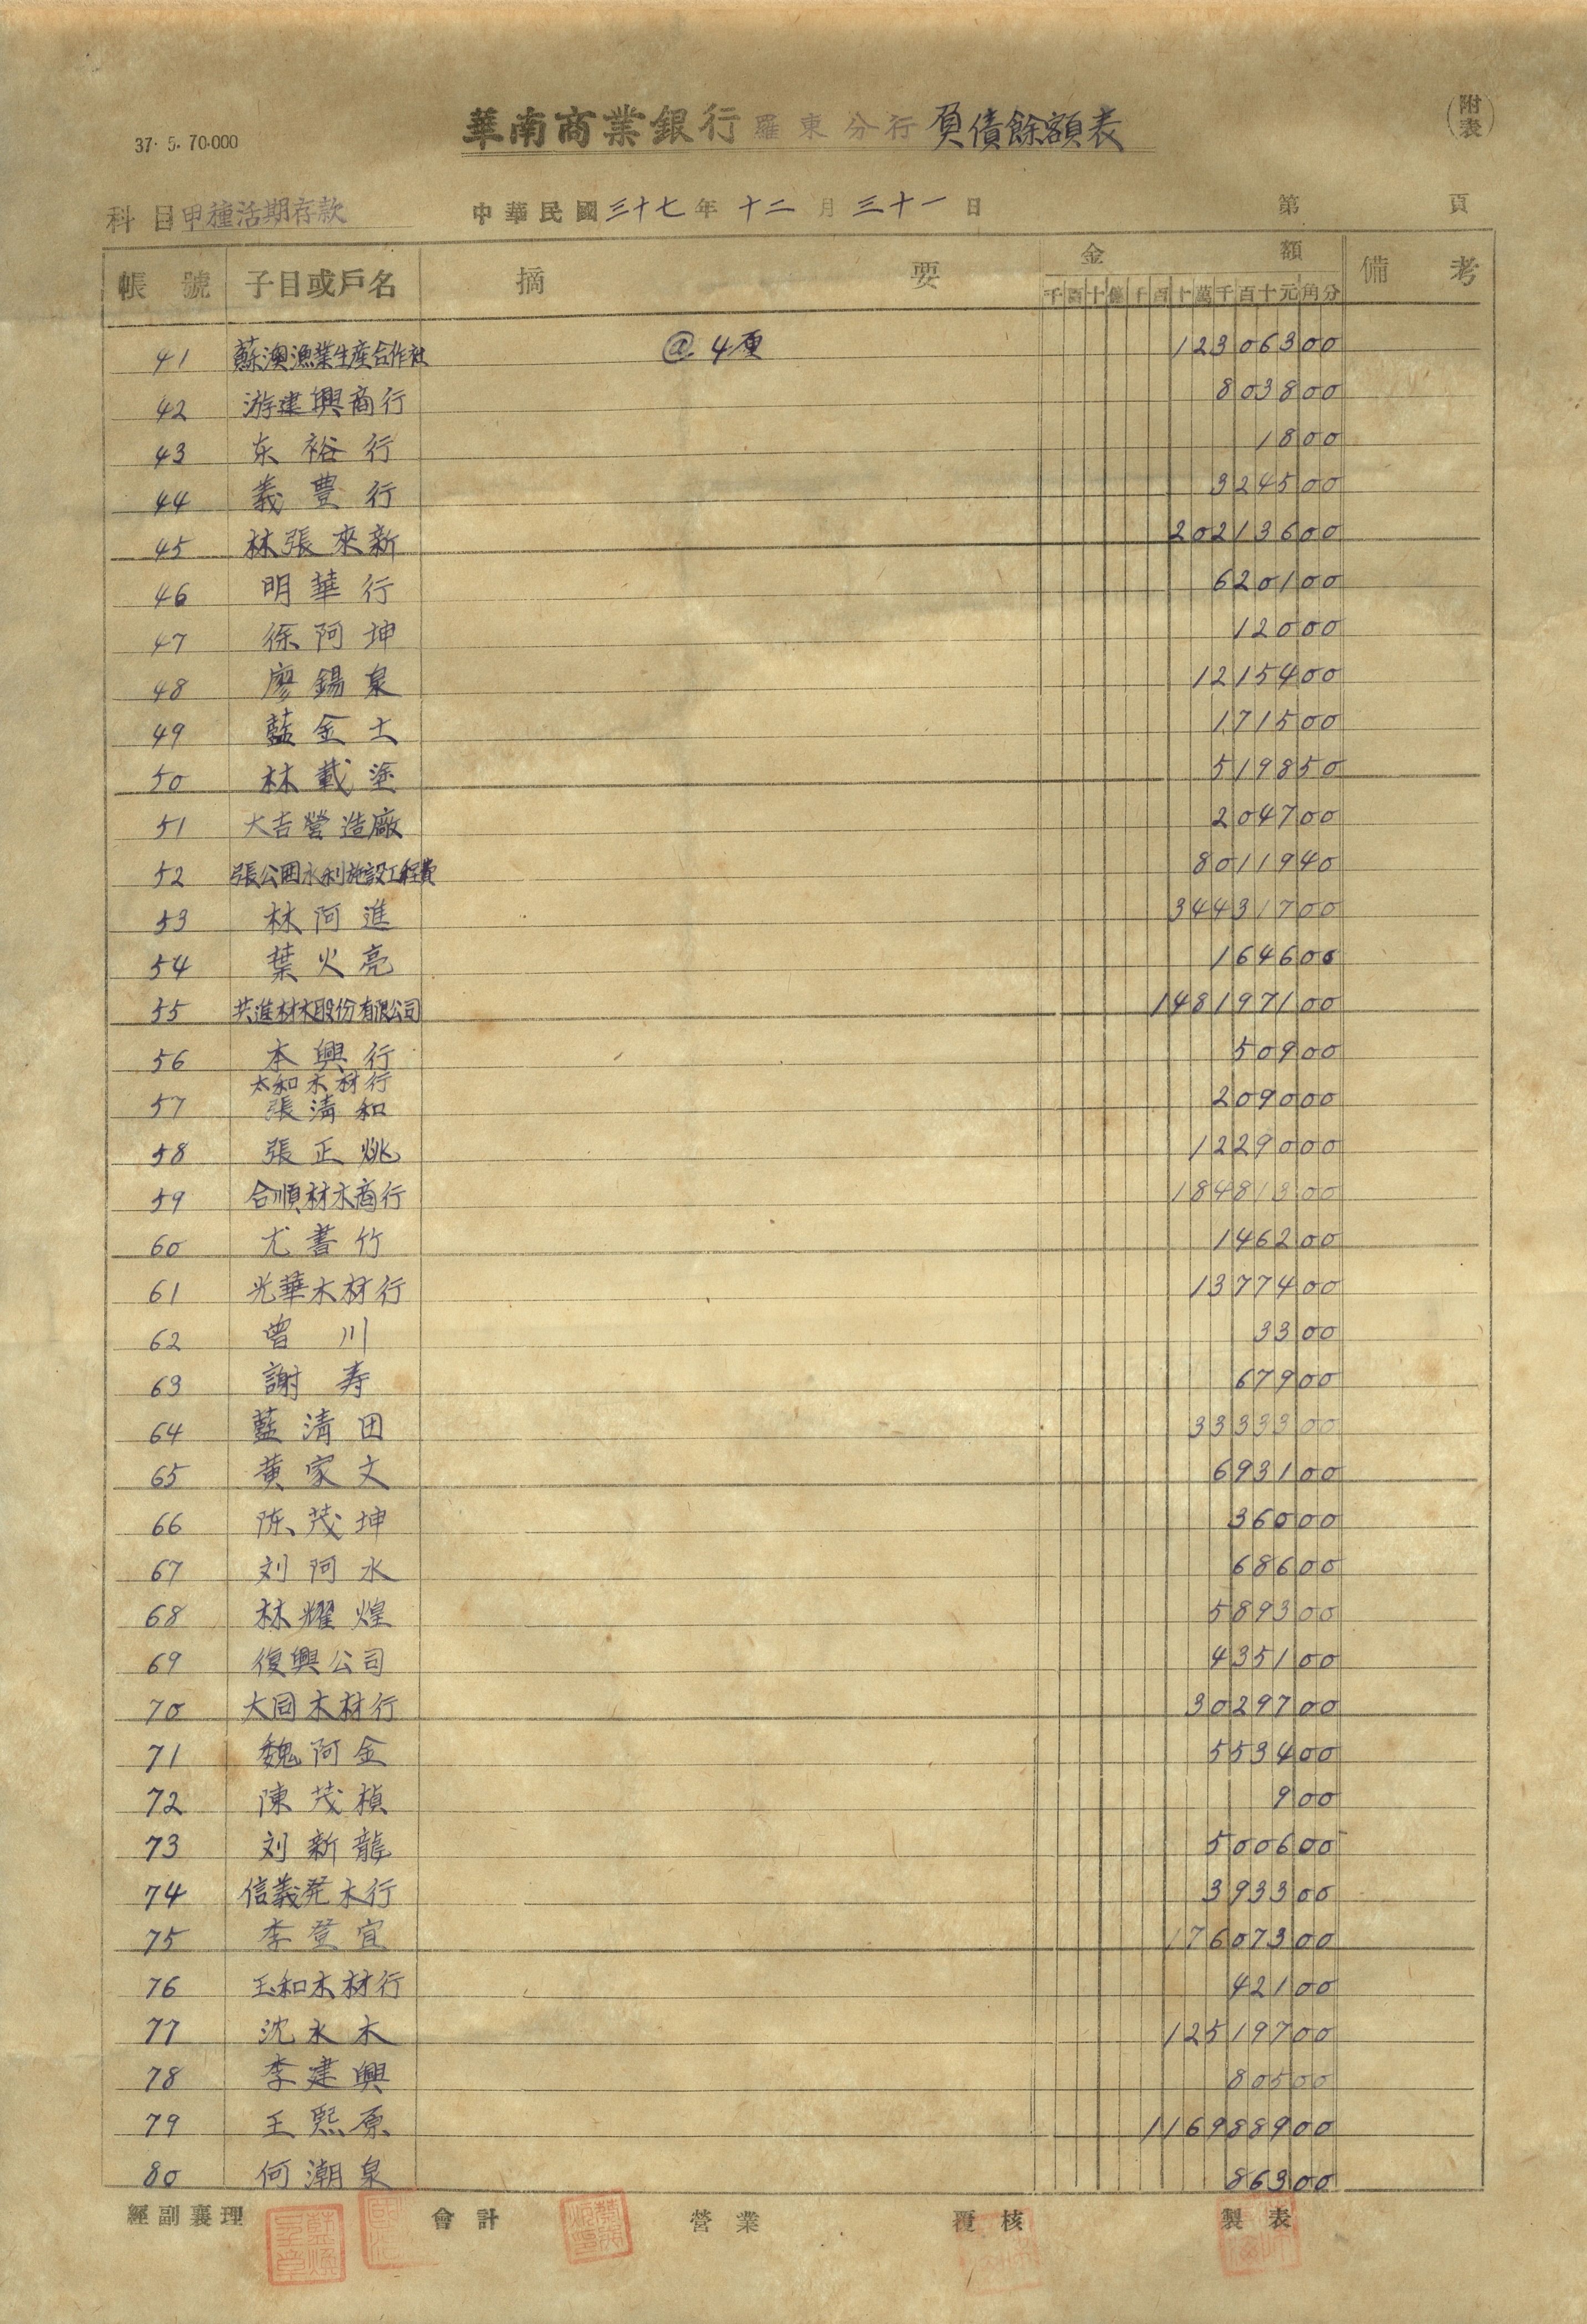 (附表)
37. 5. 70.000
華南商業銀行羅東分行負債餘額表
科目甲種活期存款 中華民國三十七年十二月三十一日 第 頁
帳號 子目或戶名 摘要 金額 備考
千百十億千百十萬千百十元角分
41 蘇澳漁業生産合作社 @ 4頁 12306300
42 游建興商行 803800
43 东裕行 1800
44 義豊行 324500
45 林張來新 20213600
46 明華行 620100
47 徐阿坤 12000
48 廖錫泉 1215400
49 藍金土 171500
50 林載塗 519850
51 大吉營造廠 204700
52 張公圍水利施設工程費 8011940
53 林阿進 34431700
54 葉火亮 164600
55 共進材木股份有限公司 148197100
56 本興行 50900
太和木材行
57 張清和 209000
58 張正姚 1229000
59 合順材木商行 18481300
60 尤善竹 146200
61 光華木材行 1377400
62 曽川 3300
63 謝寿 67900
64 藍清田 3333300
65 黄家文 693100
66 陈茂坤 36000
67 刘阿水 68600
68 林耀煌 589300
69 復興公司 435100
70 大同木材行 3029700
71 魏阿金 553400
72 陳茂楨 900
73 刘新龍 500600
74 信義発木行 393300
75 李登宜 17607300
76 玉和木材行 42100
77 沈永木 12519700
78 李建興 80500
79 王熙原 116988900
80 何潮泉 86300
經副襄理 會計 營業 覆核 製表